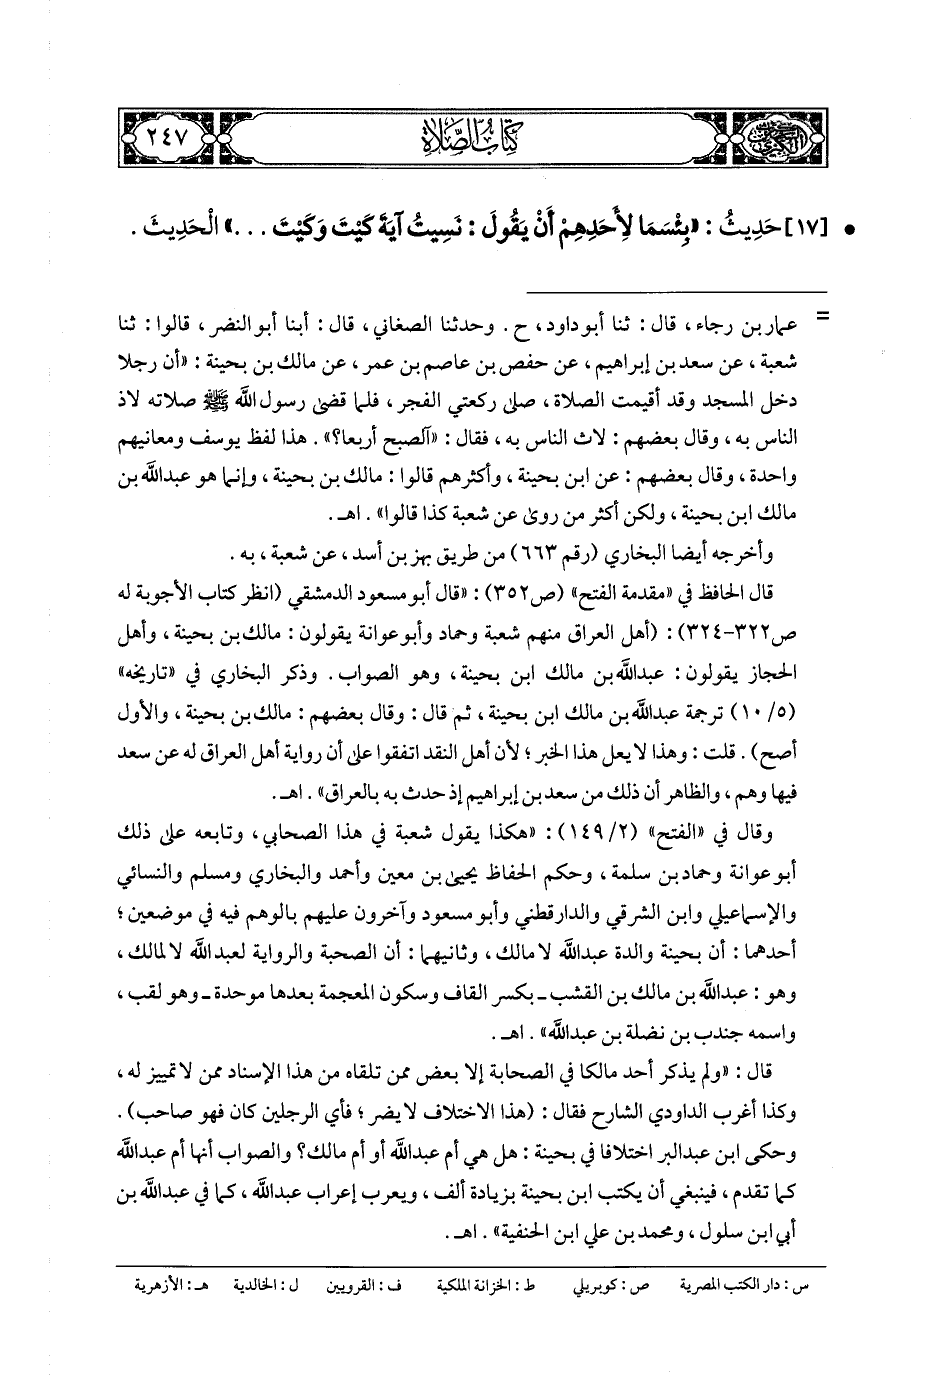 ٢٤٧
كتاب الصلاة
• [١٧] حَدِيثُ : «بِئْسَمَا لِأَحَدِهِمْ أَنْ يَقُولَ : نَسِيتُ آيَةَ كَيْتَ وَكَيْتَ ...» الْحَدِيثَ .
= عمار بن رجاء ، قال : ثنا أبو داود ، ح . وحدثنا الصغاني ، قال : أبنا أبو النضر ، قالوا : ثنا
شعبة ، عن سعد بن إبراهيم ، عن حفص بن عاصم بن عمر ، عن مالك بن بحينة : «أن رجلا
دخل المسجد وقد أقيمت الصلاة ، صلى ركعتي الفجر ، فلما قضى رسول الله ﷺ صلاته لاذ
الناس به ، وقال بعضهم : لاث الناس به ، فقال : «آلصبح أربعا؟» . هذا لفظ يوسف ومعانيهم
واحدة ، وقال بعضهم : عن ابن بحينة ، وأكثرهم قالوا : مالك بن بحينة ، وإنما هو عبدالله بن
مالك ابن بحينة ، ولكن أكثر من روى عن شعبة كذا قالوا» . اهـ .
وأخرجه أيضا البخاري (رقم ٦٦٣) من طريق بهز بن أسد ، عن شعبة ، به .
قال الحافظ في «مقدمة الفتح» (ص٣٥٢) : «قال أبو مسعود الدمشقي (انظر كتاب الأجوبة له
ص٣٢٢-٣٢٤) : (أهل العراق منهم شعبة وحماد وأبو عوانة يقولون : مالك بن بحينة ، وأهل
الحجاز يقولون : عبدالله بن مالك ابن بحينة ، وهو الصواب . وذكر البخاري في «تاريخه»
(٥/ ١٠) ترجمة عبدالله بن مالك ابن بحينة ، ثم قال : وقال بعضهم : مالك بن بحينة ، والأول
أصح) . قلت : وهذا لا يعل هذا الخبر ؛ لأن أهل النقد اتفقوا على أن رواية أهل العراق له عن سعد
فيها وهم ، والظاهر أن ذلك من سعد بن إبراهيم إذ حدث به بالعراق» . اهـ .
وقال في «الفتح» (٢/ ١٤٩) : «هكذا يقول شعبة في هذا الصحابي ، وتابعه على ذلك
أبو عوانة وحماد بن سلمة ، وحكم الحفاظ يحيى بن معين وأحمد والبخاري ومسلم والنسائي
والإسماعيلي وابن الشرقي والدارقطني وأبو مسعود وآخرون عليهم بالوهم فيه في موضعين ؛
أحدهما : أن بحينة والدة عبدالله لا مالك ، وثانيهما : أن الصحبة والرواية لعبدالله لا لمالك ،
وهو : عبدالله بن مالك بن القشب - بكسر القاف وسكون المعجمة بعدها موحدة - وهو لقب ،
واسمه جندب بن نضلة بن عبدالله» . اهـ .
قال : «ولم يذكر أحد مالكا في الصحابة إلا بعض ممن تلقاه من هذا الإسناد ممن لا تمييز له ،
وكذا أغرب الداودي الشارح فقال : (هذا الاختلاف لا يضر ؛ فأي الرجلين كان فهو صاحب) .
وحكى ابن عبدالبر اختلافا في بحينة : هل هي أم عبدالله أو أم مالك؟ والصواب أنها أم عبدالله
كما تقدم ، فينبغي أن يكتب ابن بحينة بزيادة ألف ، ويعرب إعراب عبدالله ، كما في عبدالله بن
أبي ابن سلول ، ومحمد بن علي ابن الحنفية» . اهـ .
س : دار الكتب المصرية ص : كوبريلي ط : الخزانة الملكية ف : القرويين ل : الخالدية هـ : الأزهرية